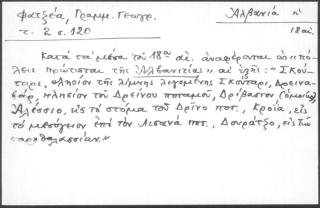 Φατζέα, Γραμμ. Γεωγρ.
Ἀλβανία
τ. 2 σ. 120
18 αἰ.
Κατά τά μέσα τοῦ 18ου αἰ. ἀναφέρονται ὡς πό-
λεις πρώτισται τῆς Ἀλβανιτίας αἱ ἑξῆς: "Σκού-
ταρι, πλησίον τῆς λίμνης λεγομένης Σκούταρι, Δρειva-
βάρ, πλησίον τοῦ Δρείνου ποταμοῦ, Δρίβαστον
Ἀλέσσιο, εἰς τό στόμα τοῦ Δρῖνο ποτ., Κροία, εἰς
τό μεσόγειον ἐπί τόν Λισανά ποτ., Δουράτζο, εἰς τήν
παραθαλασσίαν."